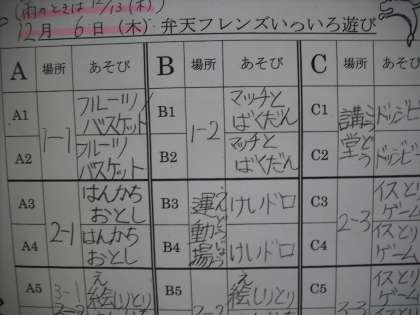 (雨のときは12/13(木))
12月 6日(木)弁天フレンズいろいろ遊び
A 場所 あそび B 場所 あそび C 場所
A1 1-1 フルーツバスケット B1 1-2 マッチとばくだん C1 講堂 こうどう ドッジビ
A2 フルーツバスケット B2 マッチとばくだん C2 ドッジビ
A3 2-1 はんかちおとし B3 運動場 うんどうじょう けいドロ C3 2-3 イスとりゲーム
A4 はんかちおとし B4 けいドロ C4 イスとりゲーム
A5 3-1 絵しりとり え B5 絵しりとり え C5 イスとり